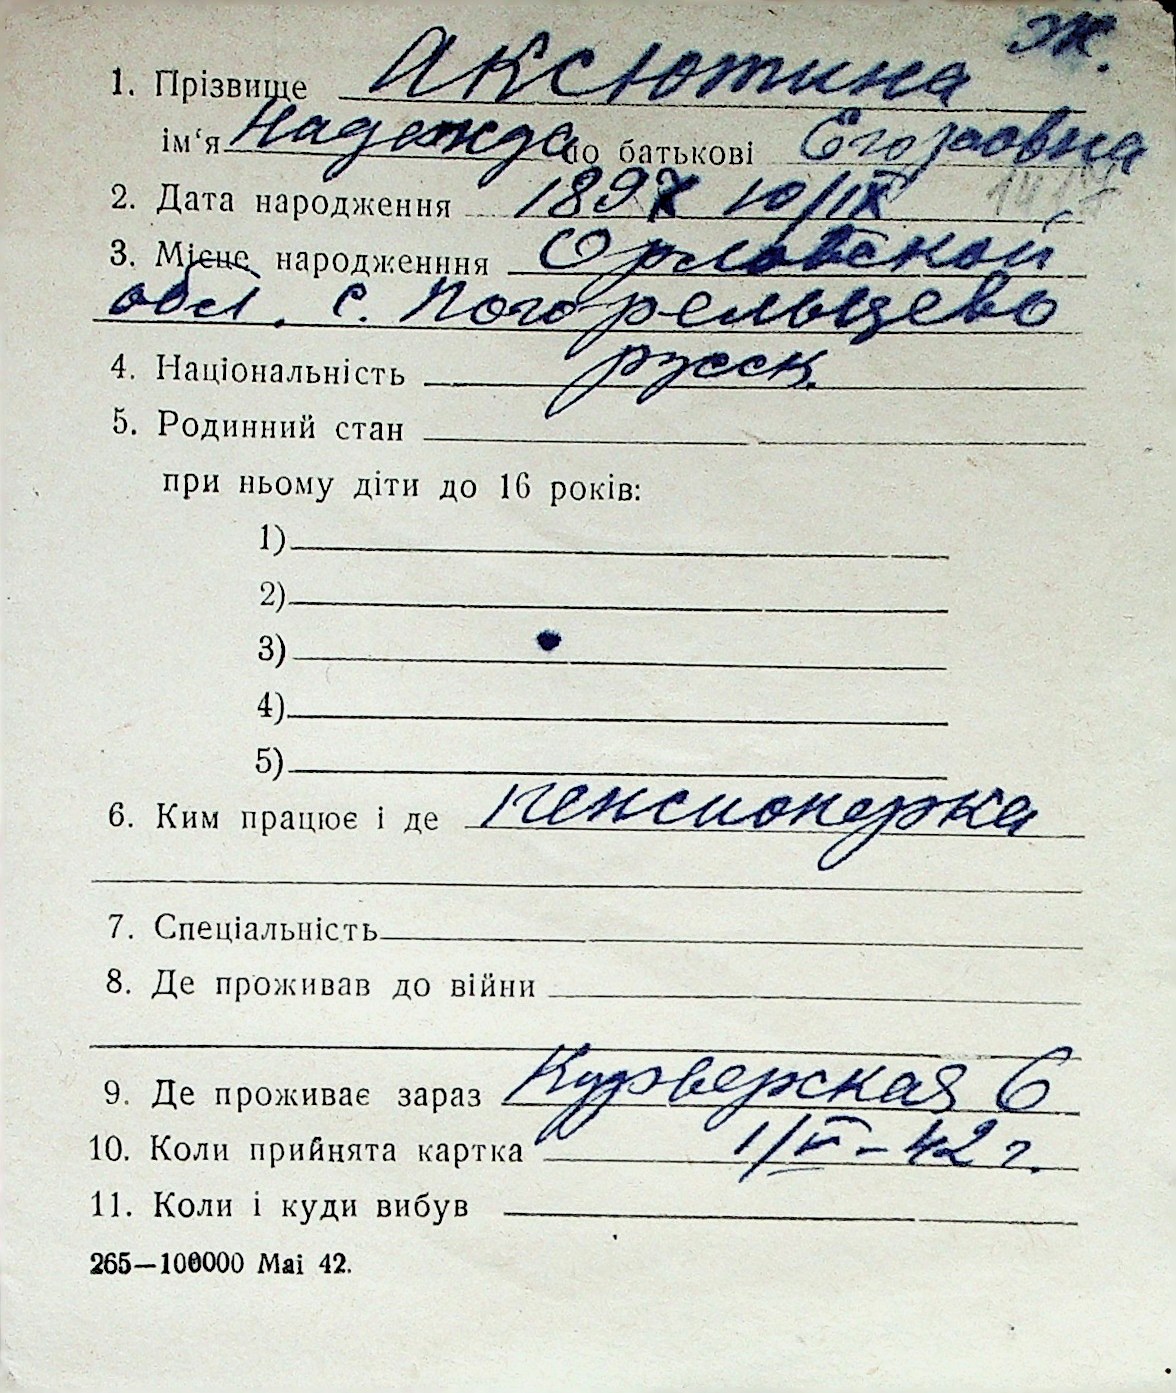 Ж.
1. Прізвище Аксютина
ім‘я Надежда по батькові Егоровна
2. Дата народження 1897 10/IX
3. Місце народженння Орловской
обл. с. Погорельцево
4. Національність русск.
5. Родинний стан
при ньому діти до 16 років:
1)
2)
3)
4)
5)
6. Ким працює і де пенсионерка
7. Спеціальність
8. Де проживав до війни
9. Де проживає зараз 6
10. Коли прийнята картка 1/VI – 42 г.
11. Коли і куди вибув
265—100000 Маі 42.